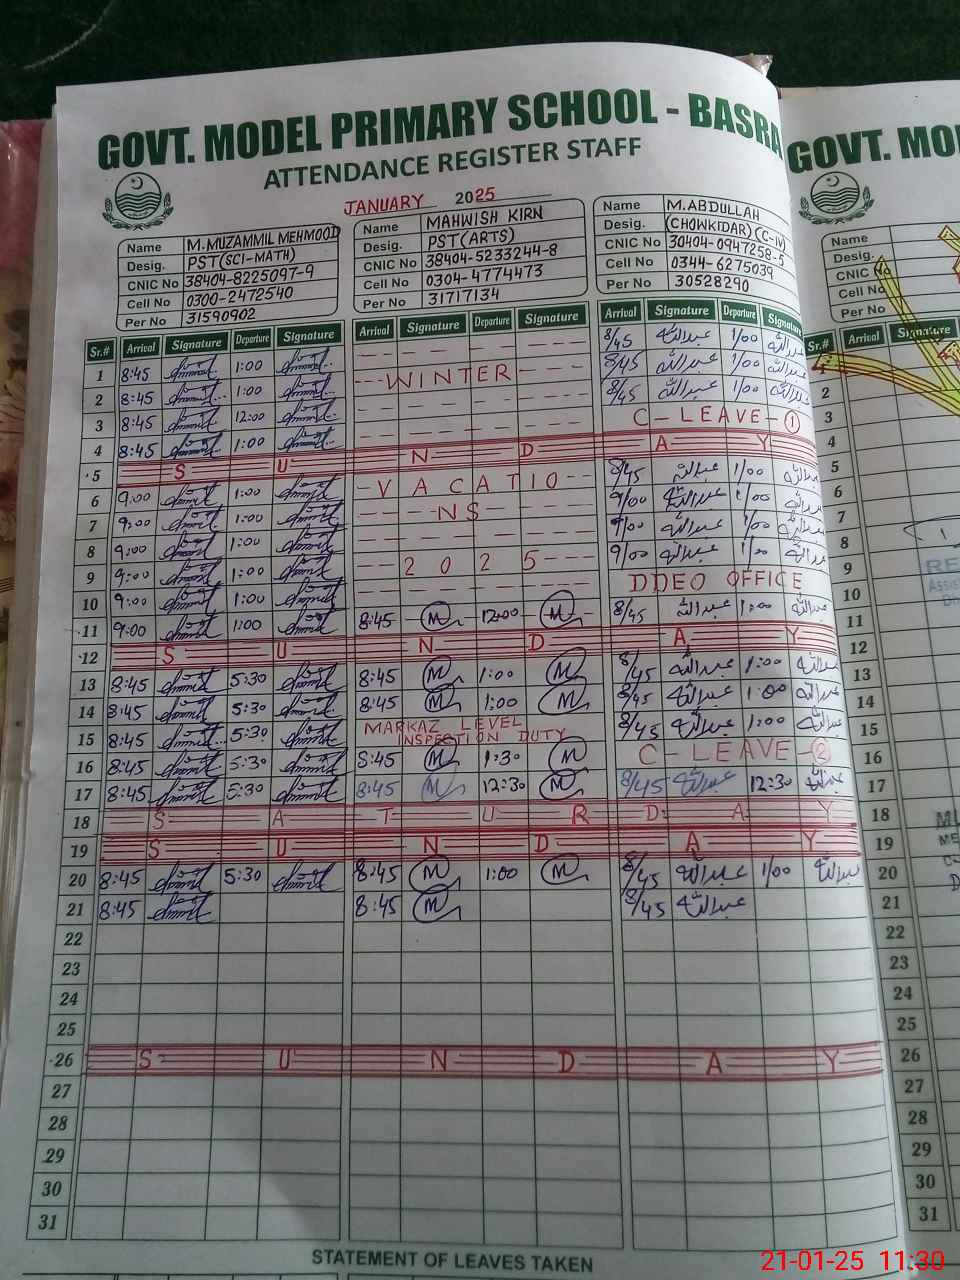 GOVT. MODEL PRIMARY SCHOOL - BASRA
ATTENDANCE REGISTER STAFF
JANUARY 2025
Name M.MUZAMMIL MEHMOOD
Desig. PST(SCI-MATH)
CNIC No 38404-8225097-9
Cell No 0300-2472540
Per No 31590902
Name MAHWISH KIRN
Desig. PST(ARTS)
CNIC No 38404-5233244-8
Cell No 0304-4774473
Per No 31717134
Name M.ABDULLAH
Desig. (CHOWKIDAR)(C-IV)
CNIC No 30404-0947258-5
Cell No 0344-6275039
Per No 30528290
Sr.# Arrival Signature Departure Signature Arrival Signature Departure Signature Arrival Signature Departure Signature
1 8:45 1:00 8/45 عبداللہ 1/00 عبداللہ
2 8:45 1:00 WINTER 8/45 عبداللہ 1/00 عبداللہ
3 8:45 12:00 8/45 عبداللہ 1/00 عبداللہ
4 8:45 1:00 C - LEAVE - 1
5 S U N D A Y
6 9:00 1:00 VACATIO 8/45 عبداللہ 1/00 عبداللہ
7 9:00 1:00 NS 9/00 عبداللہ 1/00 عبداللہ
8 9:00 1:00 9/00 عبداللہ 1/00 عبداللہ
9 9:00 1:00 2025 9/00 عبداللہ 1/00 عبداللہ
10 9:00 1:00 DDEO OFFICE
11 9:00 1:00 8:45 M 12:00 M 8/45 عبداللہ 1:00 عبداللہ
12 S U N D A Y
13 8:45 5:30 8:45 M 1:00 M 8/45 عبداللہ 1:00 عبداللہ
14 8:45 5:30 8:45 M 1:00 M 8/45 عبداللہ 1:00 عبداللہ
15 8:45 5:30 MARKAZ LEVEL INSPECTION DUTY 8/45 عبداللہ 1:00 عبداللہ
16 8:45 5:30 8:45 M 1:30 M C - LEAVE - 2
17 8:45 5:30 8:45 M 12:30 M 8/45 عبداللہ 12:30 عبداللہ
18 S A T U R D A Y
19 S U N D A Y
20 8:45 5:30 8:45 M 1:00 M 8/45 عبداللہ 1/00 عبداللہ
21 8:45 8:45 M 8/45 عبداللہ
22
23
24
25
26 S U N D A Y
27
28
29
30
31
STATEMENT OF LEAVES TAKEN
GOVT. MO
Name
Desig.
CNIC
Cell No
Per No
Arrival Signature
2
3
4
5
6
7
8
9
10
11
12
13
14
15
16
17
18
19
20
21
22
23
24
25
26
27
28
29
30
31
21-01-25 11:30